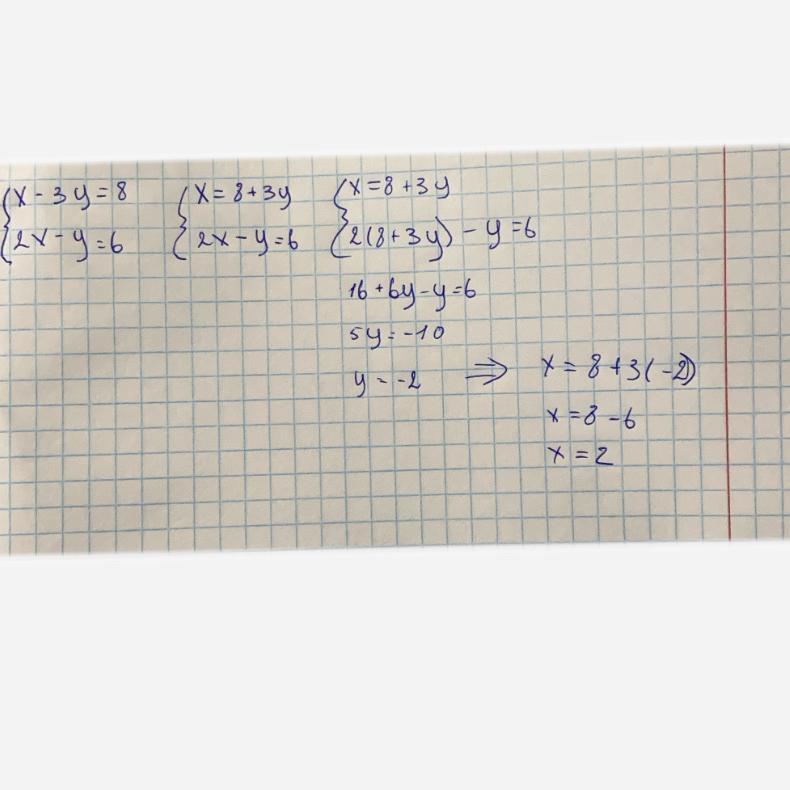 x - 3y = 8
2x - y = 6
x = 8 + 3y
2x - y = 6
x = 8 + 3y
2(8 + 3y) - y = 6
16 + 6y - y = 6
5y = -10
y = -2 ⇒ x = 8 + 3(-2)
x = 8 - 6
x = 2